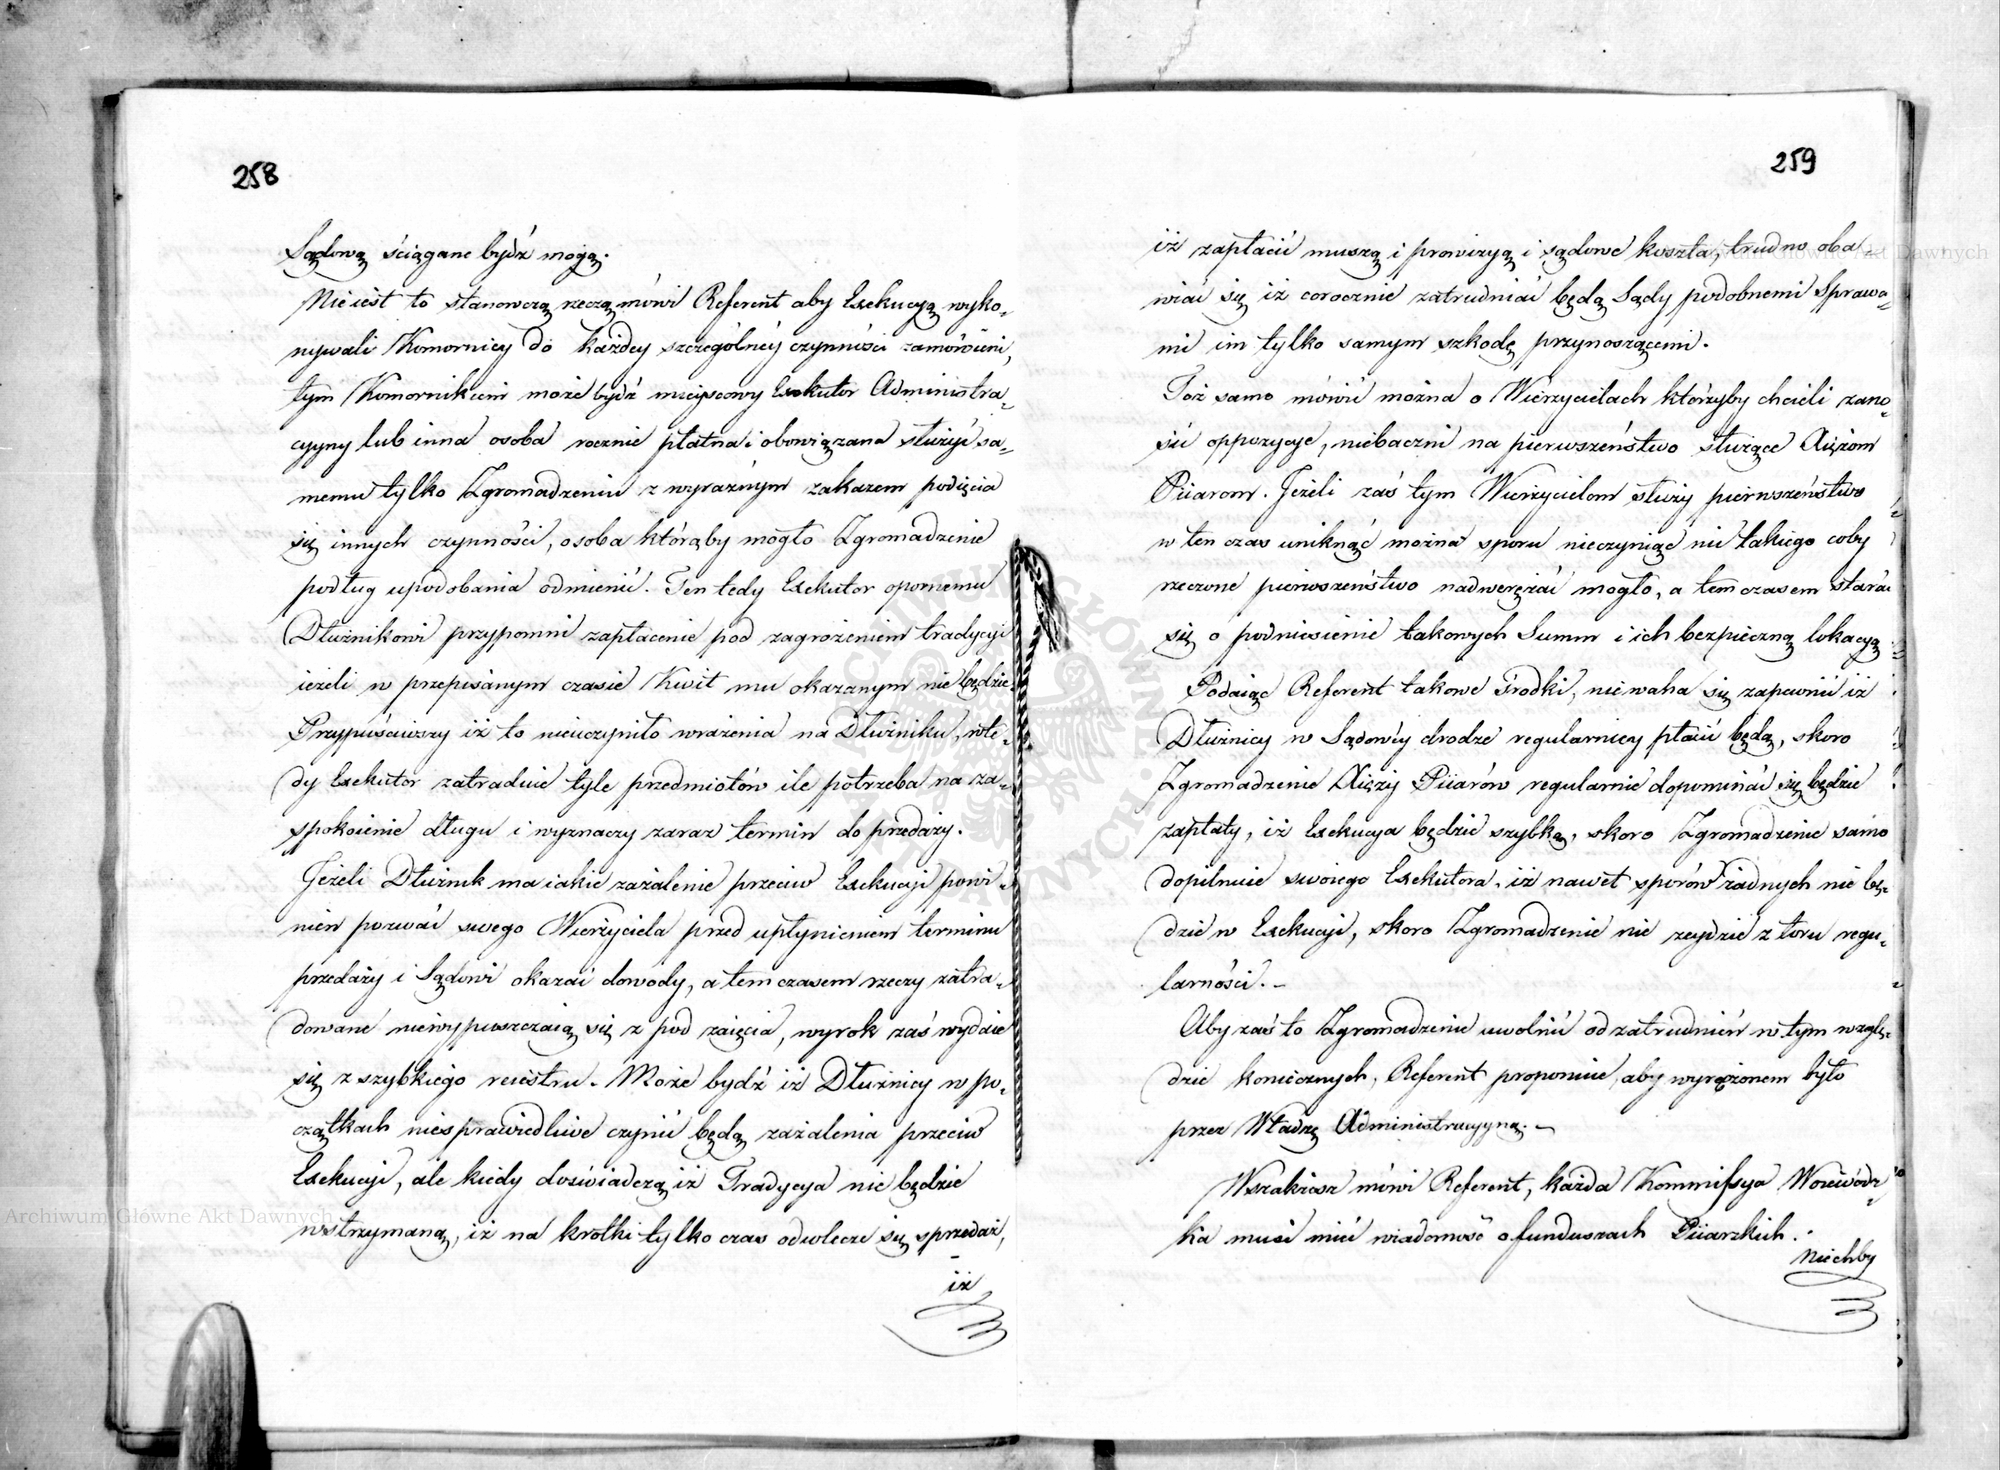 258
Sądową ściągane bydź mogą.
Nie iest to stanowczą rzeczą mówi Referent aby Exekucyą wyko-
nywali Komornicy do każdey szczególnéy czynności zamówieni,
tym Komornikiem może bydź mieyscowy Exekutor Administra-
cyyny lub inna osoba rocznie płatna i obowiązana służyć sa-
memu tylko Zgromadzeniu z wyraźnym zakazem podięcia
się innych czynności, osoba którąby mogło Zgromadzenie
podług upodobania odmienić. Ten tedy Exekutor opornemu
Dłużnikowi przypomni zapłacenie pod zagrożeniem tradycyi
ieżeli w przepisanym czasie Kwit mu okazanym nie będzie.
Przypuściwszy iż to nieuczyniło wrażenia na Dłużniku, wte-
dy Exekutor zatraduie tyle przedmiotów ile potrzeba na za-
spokoienie długu i wyznaczy zaraz termin do przedaży.
Jeżeli Dłużnik ma iakie zażalenie przeciw Exekucyi powi-
nien pozwać swego Wierzyciela przed upłynieniem terminu
przedaży i Sądowi okazać dowody, a tem czasem rzeczy zatra-
dowane niewypuszczaią się z pod zaięcia, wyrok zaś wydaie
się z szybkiego reiestru. Może bydź iż Dłużnicy w po-
czątkach niesprawiedliwe czynić będą zażalenia przeciw
Exekucyi, ale kiedy doświadczą iż Tradycya nie będzie
wstrzymaną, iż na krótki tylko czas odwlecze się sprzedaż,
iż
259
iż zapłacić muszą i prowizyą i sądowe koszta, trudno oba-
wiać się iż corocznie zatrudniać będą Sądy podobnemi Sprawa-
mi im tylko samym szkodę przynoszącemi.
Toż samo mówić można o Wierzycielach którzyby chcieli zano-
sić oppozycye, niebaczni na pierwszeństwo służące Xiężom
Piiarom. Jeżeli zaś tym Wierzycielom służy pierwszeństwo
w ten czas uniknąć można sporu nieczyniąc nic takiego coby
rzeczone pierwszeństwo nadwerężać mogło, a tem czasem starać
się o podniesienie takowych Summ i ich bezpieczną lokacyą
Podaiąc Referent takowe srodki, nie waha się zapewnić iż
Dłużnicy w Sądowéy drodze regularniey płacić będą, skoro
Zgromadzenie Xięży Piiarów regularnie dopominać się będzie
zapłaty, iż Exekucya będzie szybką, skoro Zgromadzenie samo
dopilnuie swoiego Exekutora, iż nawet sporów żadnych nie bę-
dzie w Exekucyi, skoro Zgromadzenie nie zeydzie z toru regu-
larności. -
Aby zaś to Zgromadzenie uwolnić od zatrudnień w tym wzglę-
dzie koniecznych, Referent proponuie, aby wyręczonem było
przez Władzę Administracyyną. -
Wszakież mówi Referent, każda Kommissya Woiewódz-
ka musi mieć wiadomość o funduszach Piiarskich.
Niechby
Archiwum Główne Akt Dawnych
Archiwum Główne Akt Dawnych
ARCHIWUM GŁÓWNE AKT DAWNYCH